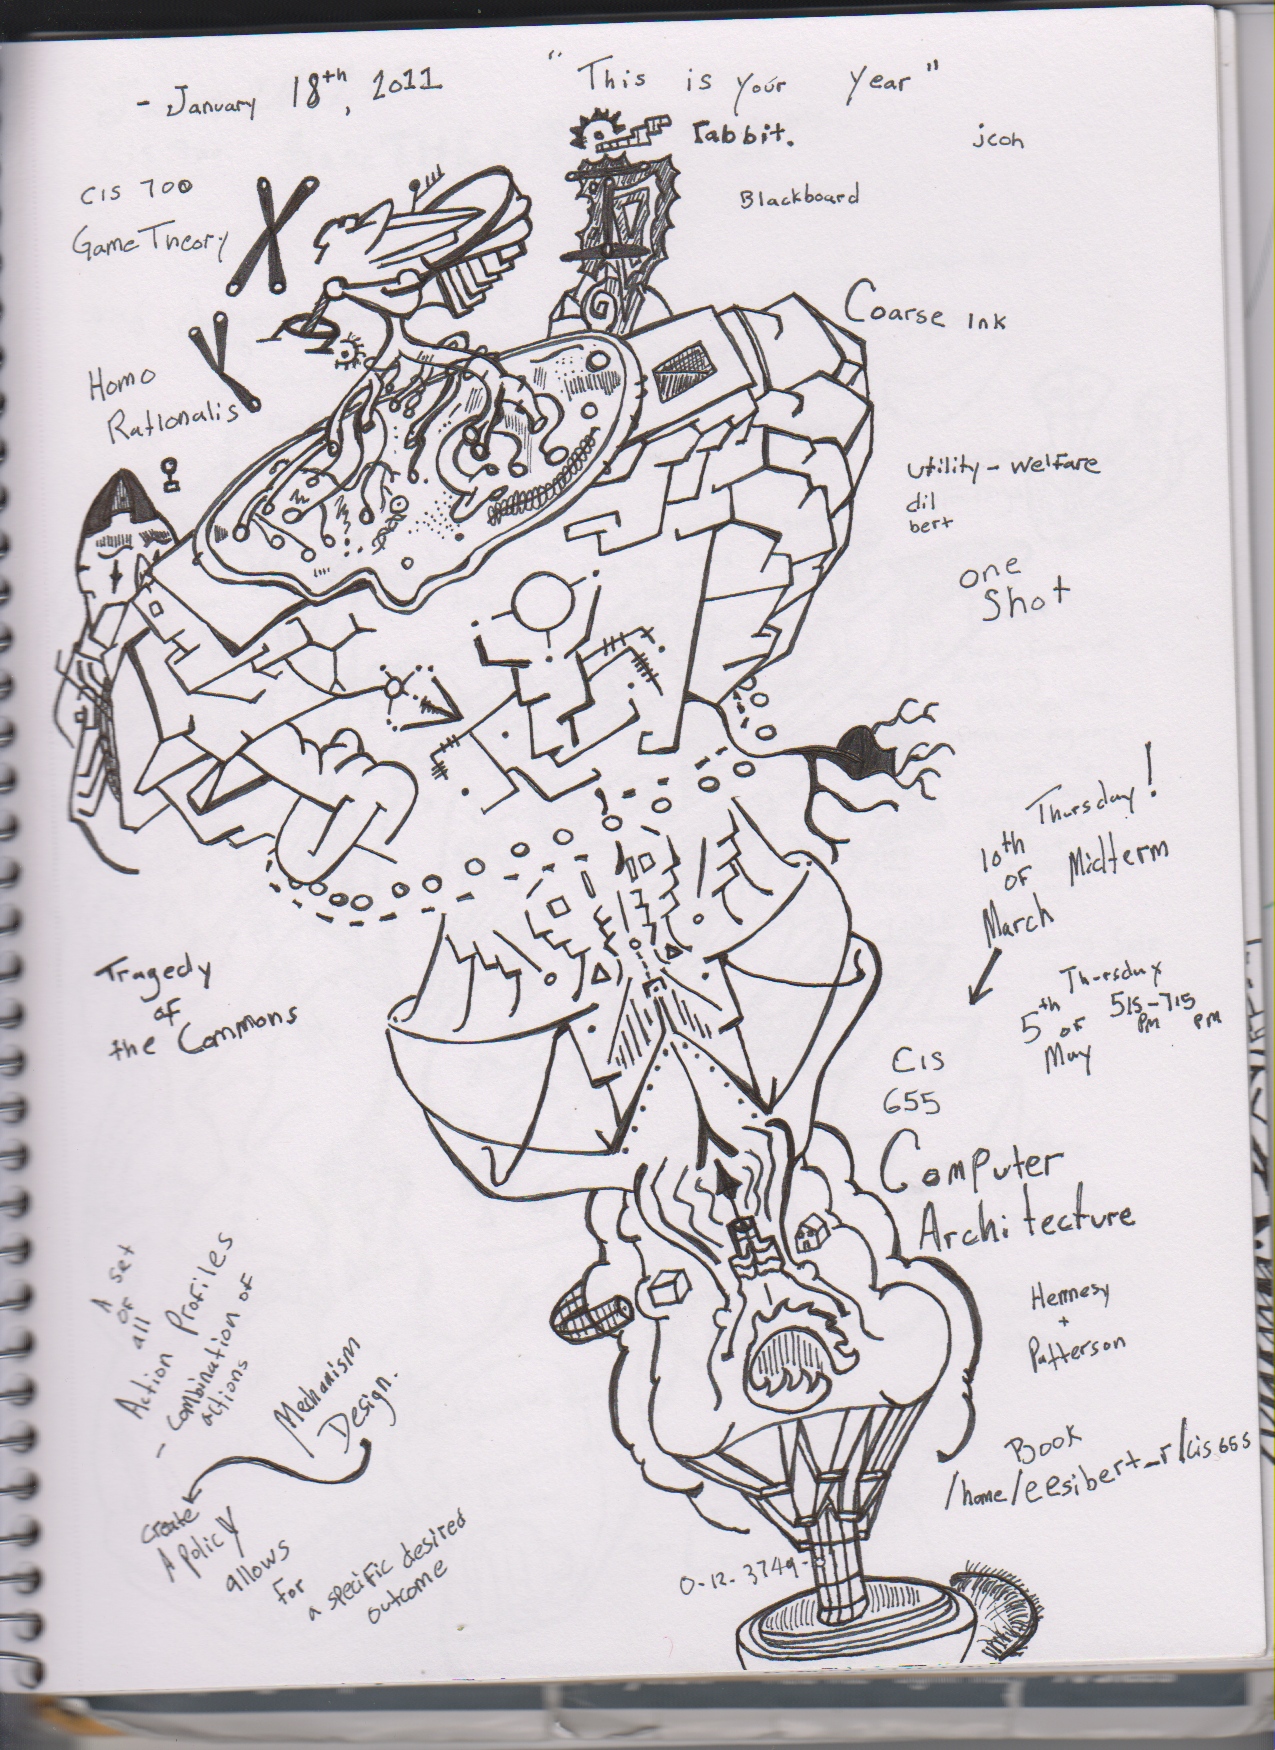 - January 18th, 2011
"This is your year"
rabbit.
jcoh
CIS 700
Game Theory
Blackboard
Coarse Ink
Homo
Rationalis
utility - welfare
dil
bert
one
Shot
Thursday!
10th
of Midterm
March
Tragedy
of
the Commons
Thursday
5th of 515-715
PM PM
May
CIS
655
Computer
Architecture
A set
of
all
Action Profiles
- combination of
actions
Mechanism
Design.
Hennesy
+
Patterson
Book
/home/eesibert_r/cis655
create
A policy
allows
for
a specific desired
outcome
0-12-3749-